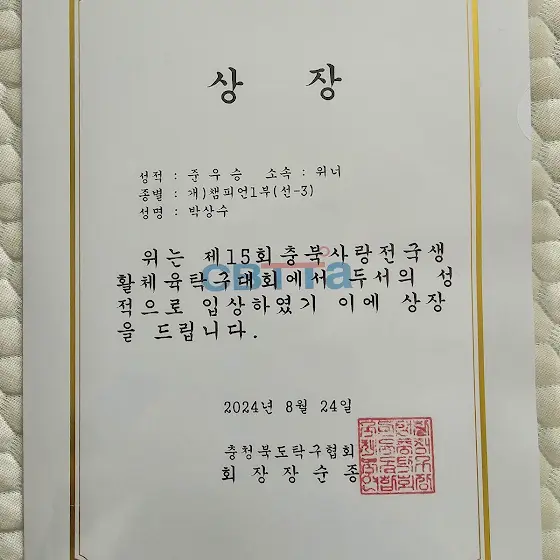 상 장
성적 : 준 우 승 소속 : 위너
종별 : 개)챔피언1부(선-3)
성명 : 박상수
위는 제15회충북사랑전국생
활체육탁구대회에서 두서의 성
적으로 입상하였기 이에 상장
을 드립니다.
CBTTa
2024년 8월 24일
충청북도탁구협회
회 장 장 순 종